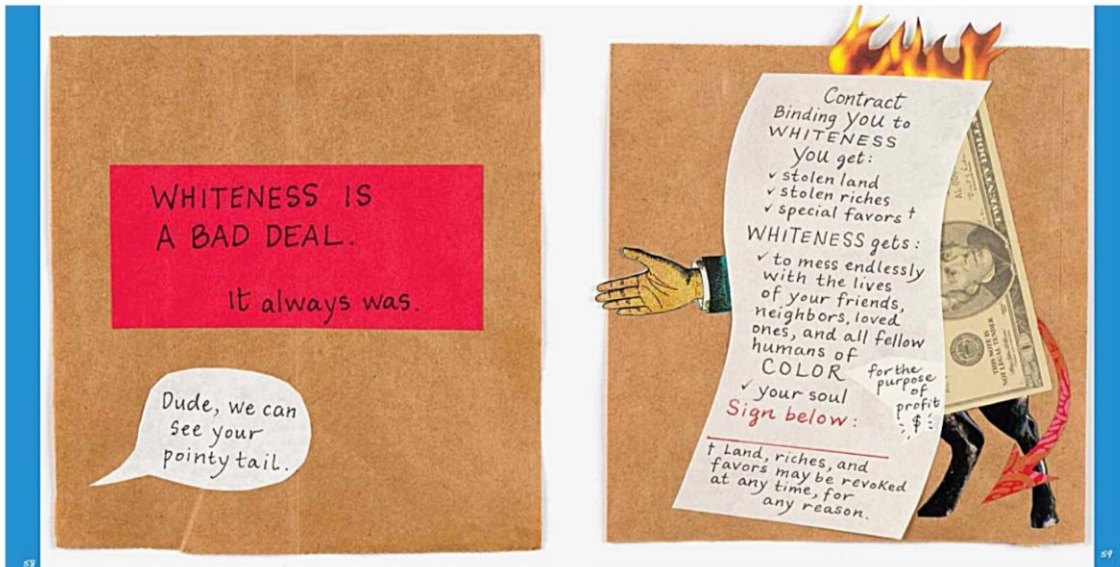 WHITENESS IS
A BAD DEAL.
It always was.
Dude, we can
see your
pointy tail.
58
Contract
Binding you to
WHITENESS
You get:
✓ stolen land
✓ stolen riches
✓ special favors †
WHITENESS gets:
✓ to mess endlessly
with the lives
of your friends,
neighbors, loved
ones, and all fellow
humans of
COLOR
for the
purpose
of
profit
$
✓ your soul
Sign below:
† Land, riches, and
favors may be revoked
at any time, for
any reason.
THIS NOTE IS
NOT LEGAL TENDER
59